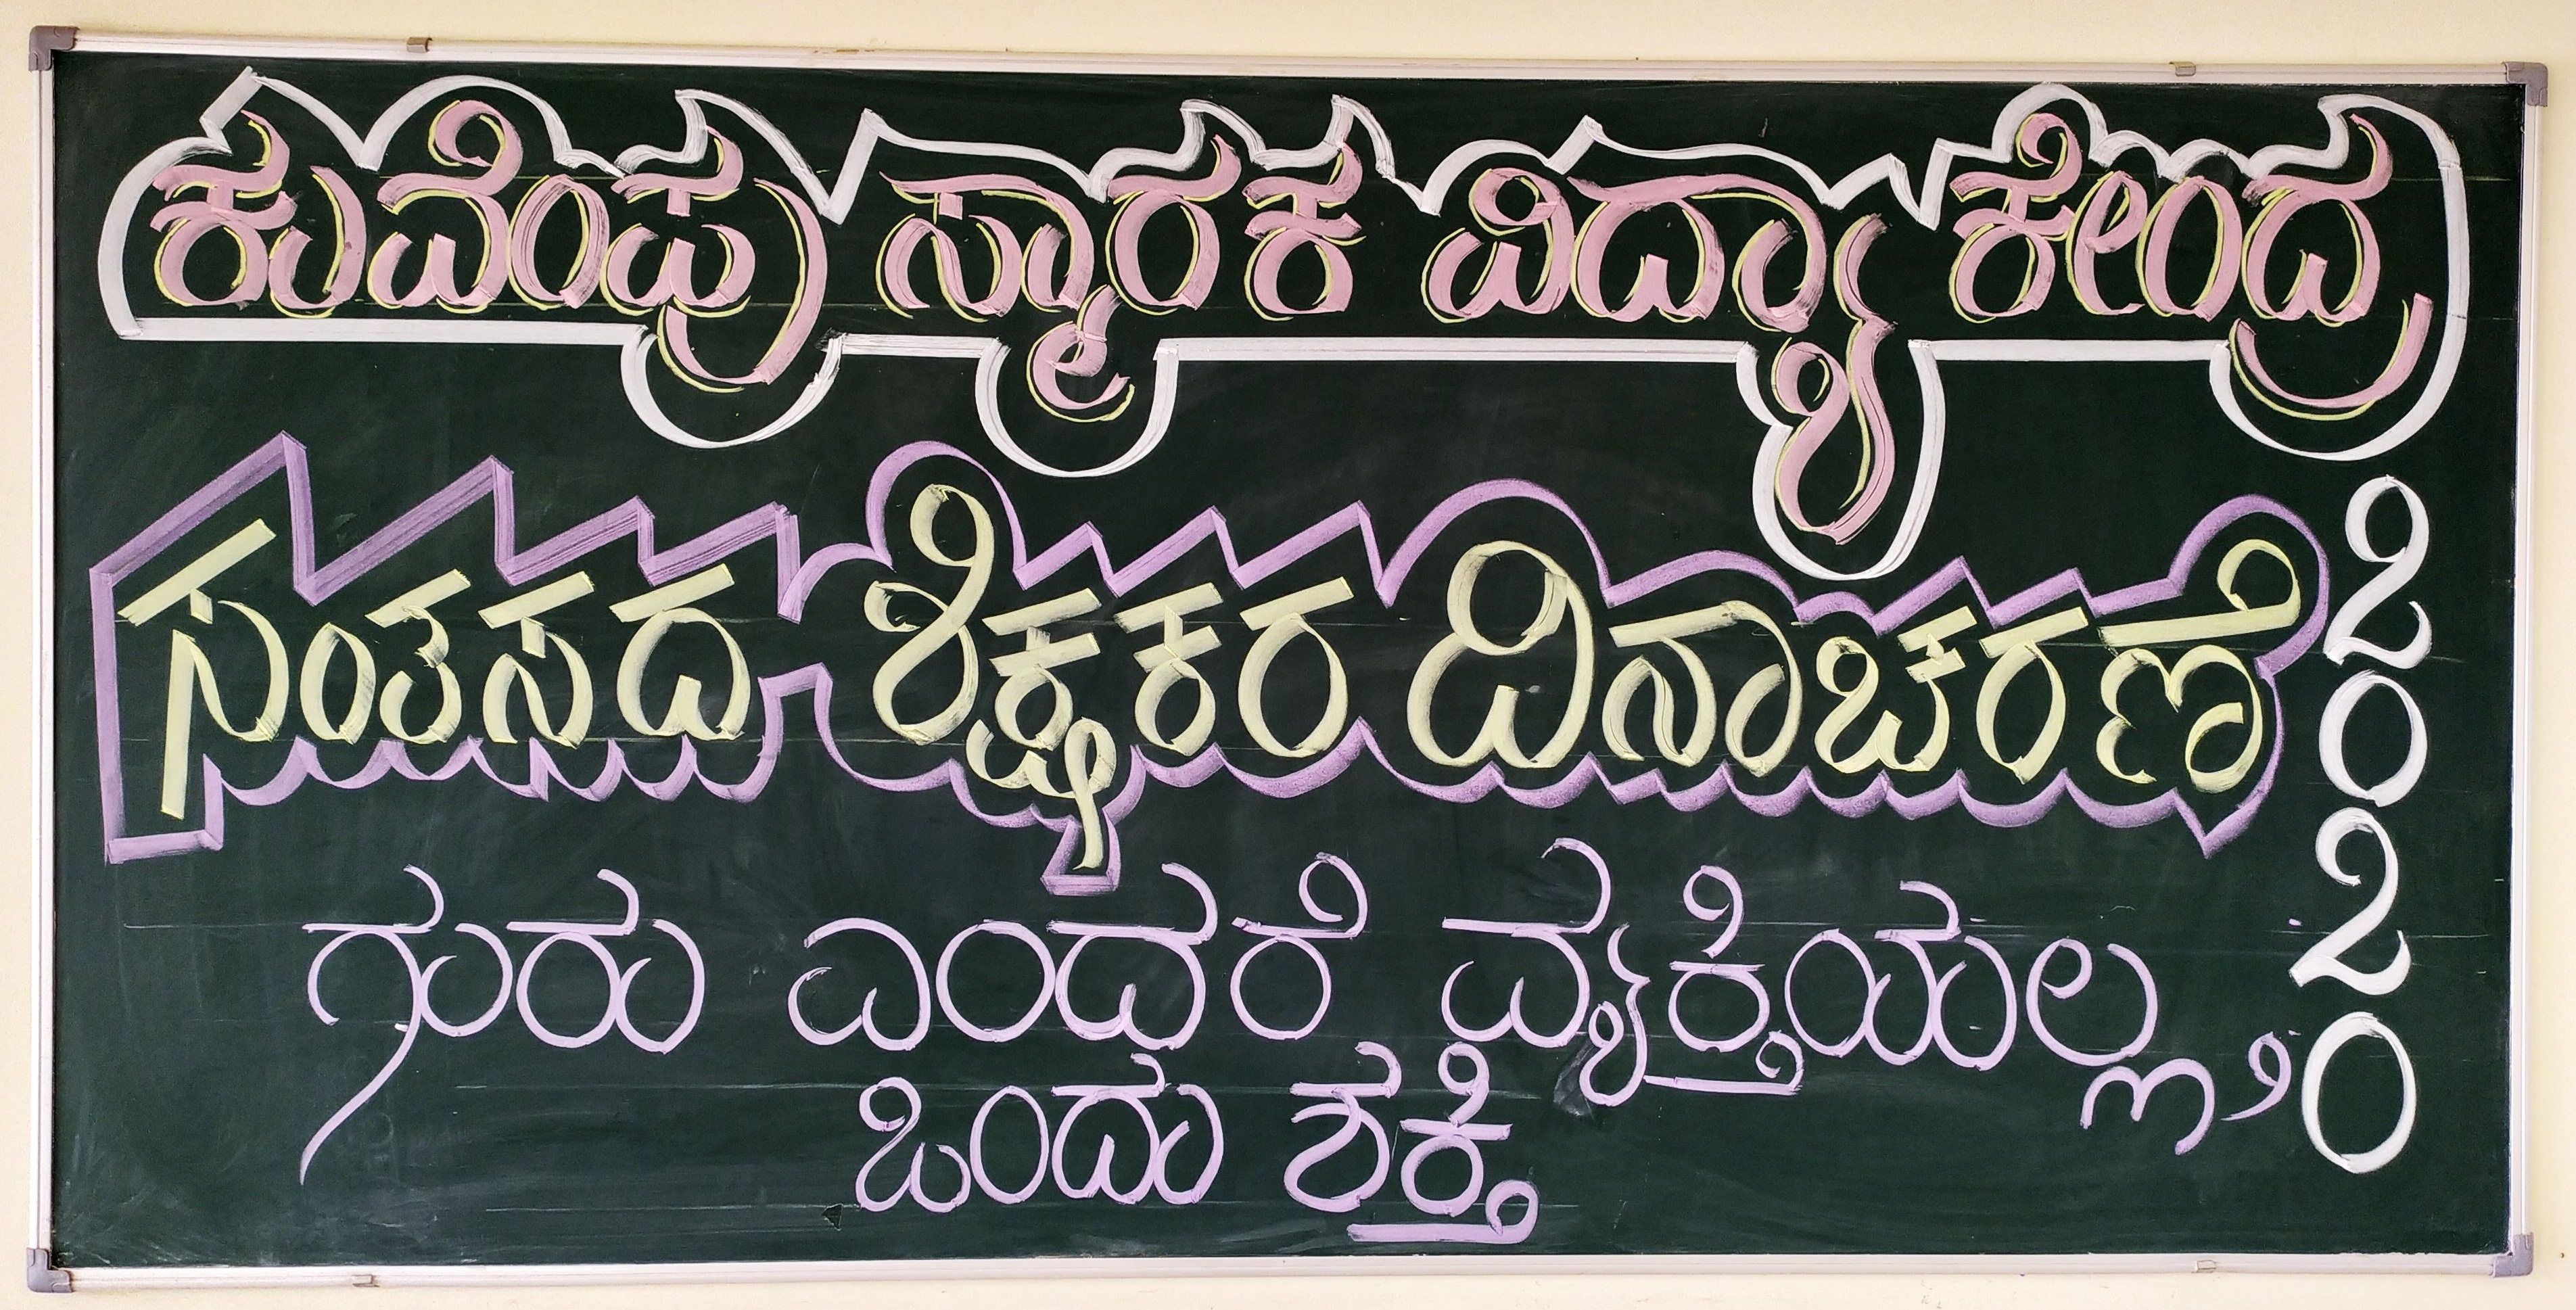 ಕುವೆಂಪು ಸ್ಮಾರಕ ವಿದ್ಯಾ ಕೇಂದ್ರ
ಸಂತಸದ ಶಿಕ್ಷಕರ ದಿನಾಚರಣೆ
2020
ಗುರು ಎಂದರೆ ವ್ಯಕ್ತಿಯಲ್ಲ,
ಒಂದು ಶಕ್ತಿ